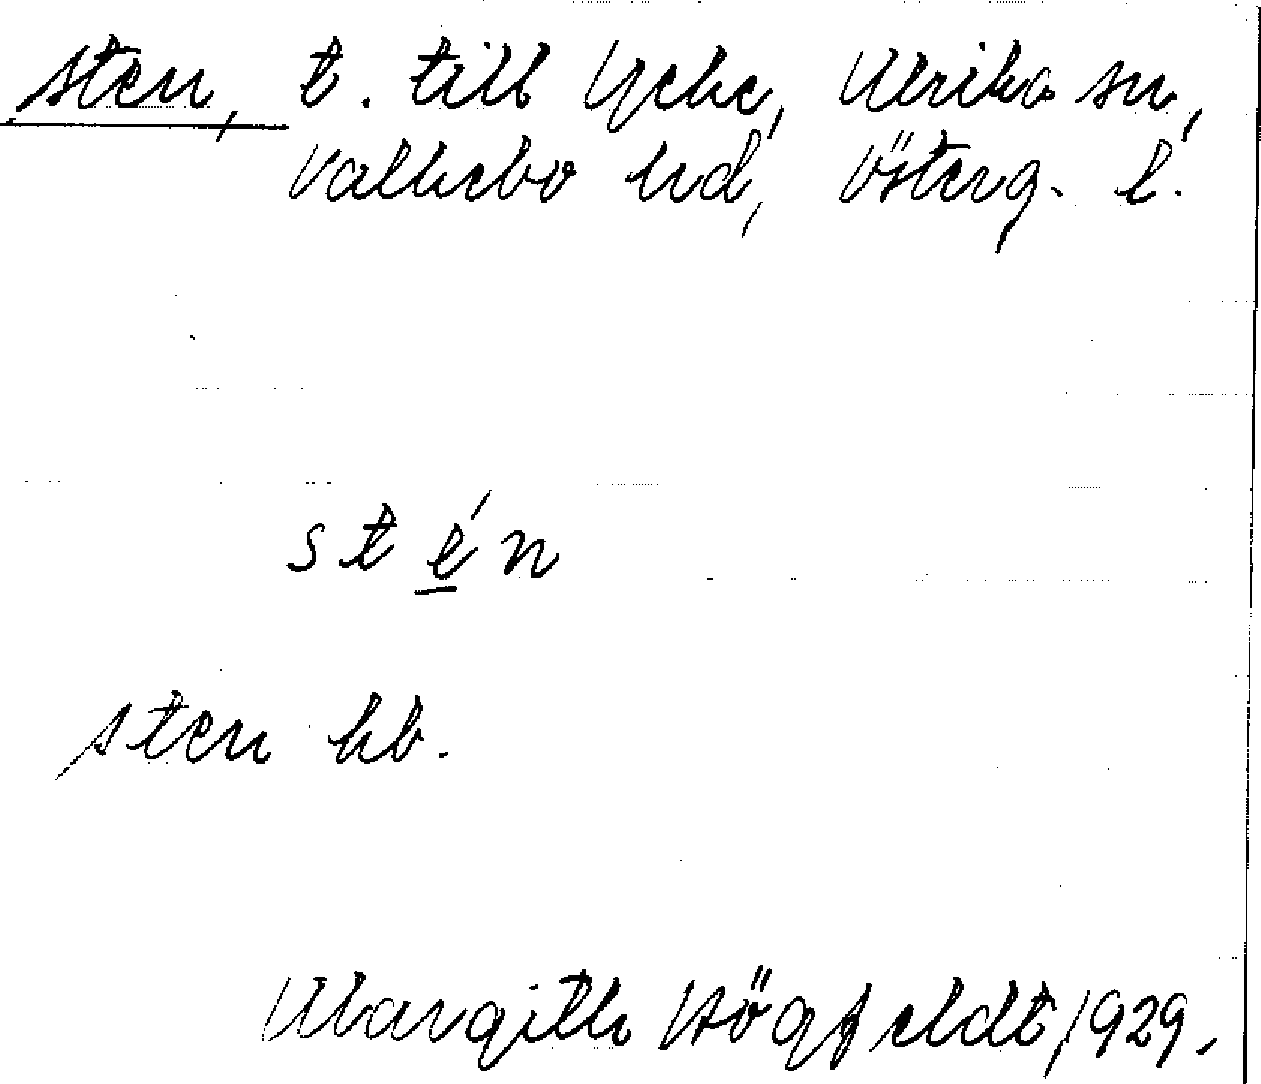 sten, t. till Ycke, Ulrika sn,
Valkebo hd, Österg. l.
stén
sten hb.
Margith Högfeldt 1929.